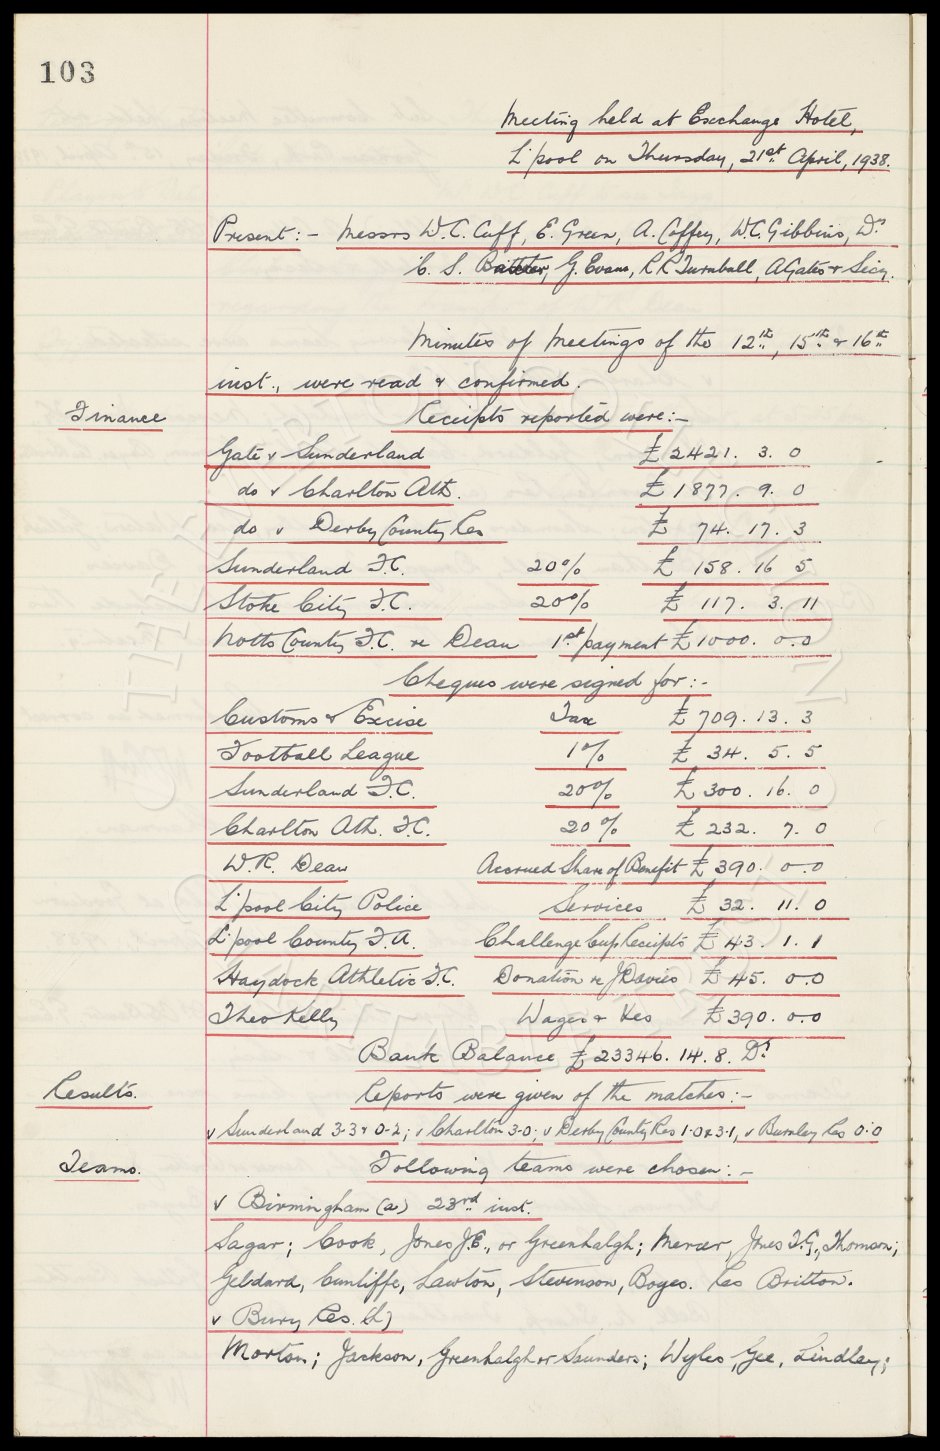 103
Meeting held at Exchange Hotel,
L'pool on Thursday, 21st April, 1938.
Present:- Messrs W.C. Cuff, E. Green, A. Coffey, W.C. Gibbins, Dr
C. S. Baxter, G. Evans, R.R. Turnbull, A Gates & Secy.
Minutes of Meetings of the 12th, 15th & 16th
inst., were read & confirmed.
Finance
Receipts reported were:-
Gate v Sunderland £2421. 3. 0
do v Charlton Ath. £1877. 9. 0
do v Derby County Res £ 74. 17. 3
Sunderland F.C. 20% £ 158. 16 5
Stoke City F.C. 20% £ 117. 3. 11
Notts County F.C. re Dean 1st payment £1000. 0.0
Cheques were signed for:-
Customs & Excise Tax £709. 13. 3
Football League 1% £ 34. 5. 5
Sunderland F.C. 20% £300. 16. 0
Charlton Ath. F.C. 20% £ 232. 7. 0
W.R. Dean Accrued Share of Benefit £390. 0.0
L'pool City Police Services £ 32. 11. 0
L'pool County F.A. Challenge Cup Receipts £43. 1. 1
Haydock Athletic F.C. Donation re J Davies £45. 0.0
Theo Kelly Wages & Xes £390. 0.0
Bank Balance £23346. 14. 8. Dr
Results.
Reports were given of the matches:-
v Sunderland 3-3 & 0-2; v Charlton 3-0; v Derby County Res 1-0 & 3-1, v Burnley Res 0-0
Teams.
Following teams were chosen:-
v Birmingham (a) 23rd inst.
Sagar; Cook, Jones J.E., or Greenhalgh; Mercer, Jones T.G., Thomson;
Geldard, Cunliffe, Lawton, Stevenson, Boyes. Res Britton.
v Bury Res. (h)
Morton; Jackson, Greenhalgh or Saunders; Wyles, Gee, Lindley;